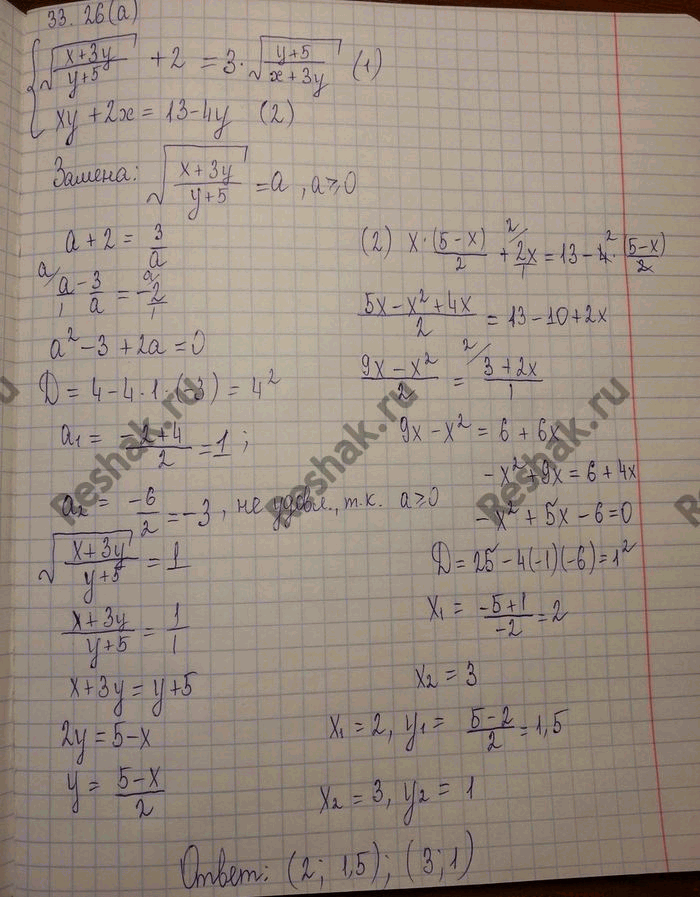 33.26(a)
{ √((x+3y)/(y+5)) + 2 = 3·√((y+5)/(x+3y)) (1)
xy + 2x = 13 - 4y (2)
Замена: √((x+3y)/(y+5)) = a, a ≥ 0
a + 2 = 3/a
a/ a/1 - 3/a = a/ -2/1
a² - 3 + 2a = 0
D = 4 - 4·1·(-3) = 4²
a₁ = (-2+4)/2 = 1;
a₂ = -6/2 = -3, не удовл., т.к. a ≥ 0
√((x+3y)/(y+5)) = 1
(x+3y)/(y+5) = 1/1
x+3y = y+5
2y = 5-x
y = (5-x)/2
(2) x·(5-x)/2 + 2/ 2x/1 = 13 - 4²·(5-x)/2
(5x - x² + 4x)/2 = 13 - 10 + 2x
(9x - x²)/2 = 2/ (3+2x)/1
9x - x² = 6 + 6x
-x² + 9x = 6 + 4x
-x² + 5x - 6 = 0
D = 25 - 4(-1)(-6) = 1²
x₁ = (-5+1)/(-2) = 2
x₂ = 3
x₁ = 2, y₁ = (5-2)/2 = 1,5
x₂ = 3, y₂ = 1
Ответ: (2; 1,5); (3; 1)
Reshak.ru
Reshak.ru
Reshak.ru